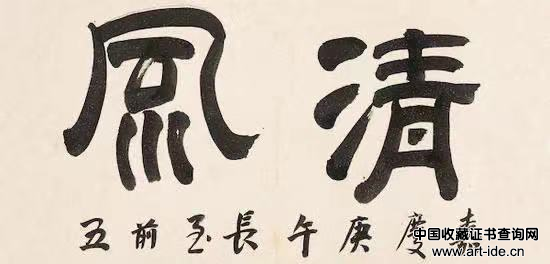 清風
嘉慶庚午長至前五
中国收藏证书查询网
www.art-ide.cn